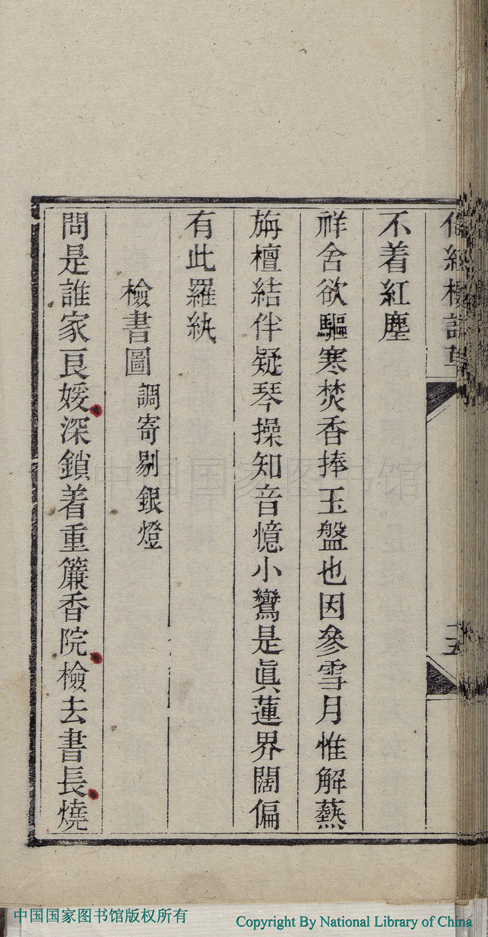 不着紅塵
祥舍欲驅寒焚香捧玉盤也因參雪月惟解爇
旃檀結伴疑琴操知音憶小鸞是眞蓮界闊偏
有此羅紈
檢書圖 調寄剔銀燈
問是誰家良媛深鎖着重簾香院檢去書長燒
五
中国国家图书馆版权所有
Copyright By National Library of China